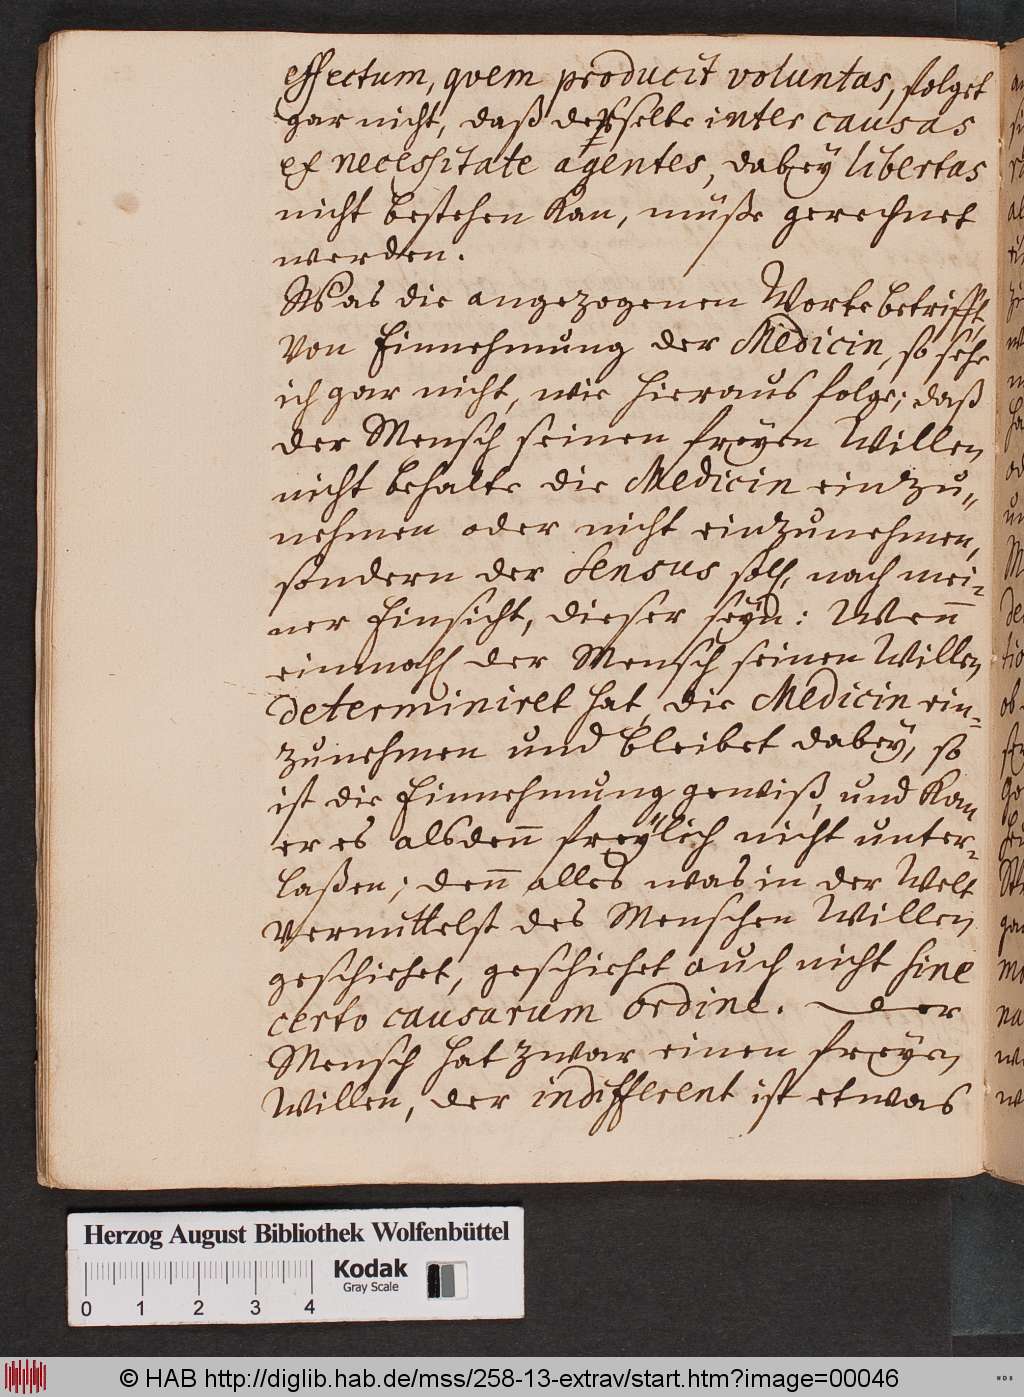 effectum, qvem producit voluntas, folget
gar nicht, daß derselbe inter causas
ex necessitate agentes, dabey libertas
nicht bestehen kan, müße gerechnet
werden.
Was die angezogenen Worte betrifft,
Von Einnehmung der Medicin, so sehe
ich gar nicht, wie hieraus folge; daß
der Mensch seinen freyen Willen
nicht behalte die Medicin einzu-
nehmen oder nicht einzunehmen,
sondern der Sensus soll, nach mei-
ner Einsicht, dieser seyn: Wenn
einmahl der Mensch seinen Willen
determiniret hat, die Medicin ein-
zunehmen und bleibet dabey, so
ist die Einnehmung gewiß, und kan
er es alsdenn freylich nicht unter-
laßen; denn alles was in der Welt
vermittelst des Menschen Willen
geschiehet, geschiehet auch nicht sine
certo causarum ordine. Der
Mensch hat zwar einen freyen
Willen, der indifferent ist etwas
Herzog August Bibliothek Wolfenbüttel
Kodak
Gray Scale
0 1 2 3 4
© HAB http://diglib.hab.de/mss/258-13-extrav/start.htm?image=00046